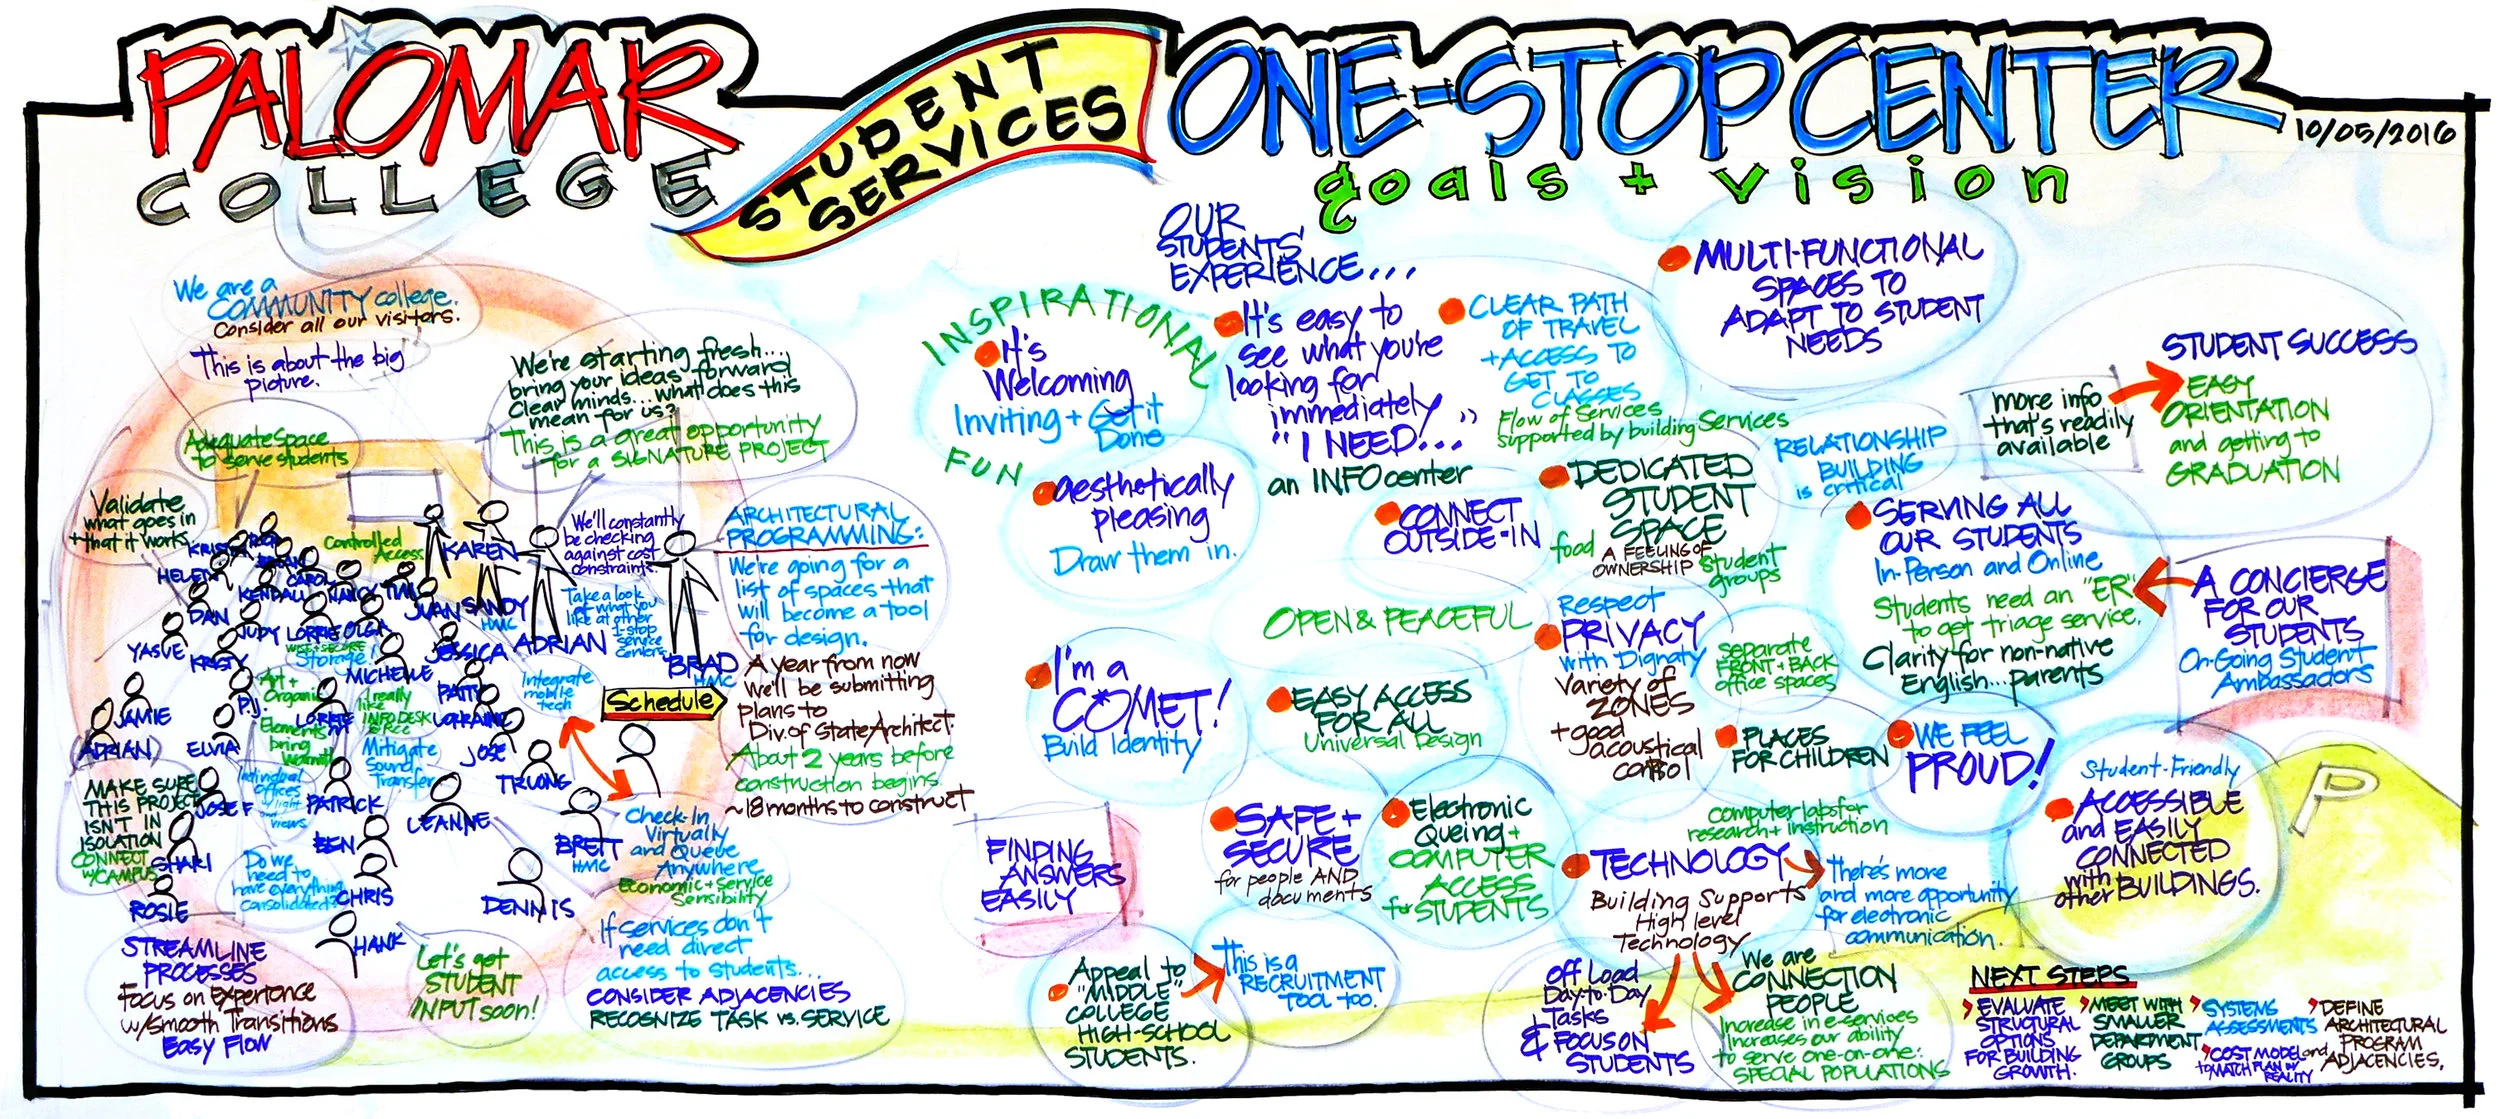 PALOMAR
COLLEGE
STUDENT
SERVICES
ONE-STOP CENTER
10/05/2016
goals + vision
We are a
COMMUNITY college.
Consider all our visitors.
This is about the big
picture.
Adequate Space
to serve students
Validate
what goes in
+ that it works
We're starting fresh...
bring your ideas forward
Clear minds... what does this
mean for us?
This is a great opportunity
for a SIGNATURE PROJECT
Controlled
Access
We'll constantly
be checking
against cost
constraints.
Take a look
at what you
like at other
1-stop
service
centers
ARCHITECTURAL
PROGRAMMING:
We're going for a
list of spaces that
will become a tool
for design.
Schedule
A year from now
we'll be submitting
plans to
Div. of State Architect.
About 2 years before
construction begins.
~18 months to construct
HELEN
CAROL
KENDALL
NANCY
TIM
KAREN
DAN
JUDY
LORRIE
OLGA
JUAN
SANDY
HMC
ADRIAN
BRAD
HMC
YASVE
KRISTY
Storage!
MICHELLE
JESSICA
PATTY
JAMIE
P.J.
LORRAINE
ADRIAN
ELVIA
JOSE
TRUONG
JOSE F
PATRICK
LEANNE
BEN
BRETT
HMC
SHARI
CHRIS
DENNIS
ROSIE
HANK
Art +
Organic
Elements
bring
Warmth
I really
like
INFO DESK
Mitigate
Sound
Transfer
Individual
offices
w/light
and
views
Integrate
mobile
tech
MAKE SURE
THIS PROJECT
ISN'T IN
ISOLATION
CONNECT
w/CAMPUS
Do we
need to
have everything
consolidated?
Check-In
Virtually
and Queue
Anywhere
Economic + Service
Sensibility
STREAMLINE
PROCESSES
Focus on Experience
w/Smooth Transitions
Easy Flow
Let's get
STUDENT
INPUT soon!
If services don't
need direct
access to students...
CONSIDER ADJACENCIES
RECOGNIZE TASK vs. SERVICE
OUR
STUDENTS'
EXPERIENCE...
INSPIRATIONAL
It's
Welcoming
Inviting + Get it
Done
FUN
It's easy to
see what you're
looking for
immediately
"I NEED..."
an INFO center
CLEAR PATH
OF TRAVEL
+ ACCESS TO
GET TO
CLASSES
Flow of Services
supported by building Services
MULTI-FUNCTIONAL
SPACES TO
ADAPT TO STUDENT
NEEDS
STUDENT SUCCESS
EASY
ORIENTATION
and getting to
GRADUATION
more info
that's readily
available
RELATIONSHIP
BUILDING
is critical
aesthetically
pleasing
Draw them in.
CONNECT
OUTSIDE-IN
DEDICATED
STUDENT
SPACE
food
A FEELING OF
OWNERSHIP
student
groups
SERVING ALL
OUR STUDENTS
In-Person and Online
Students need an "ER"
to get triage service.
Clarity for non-native
English... parents
A CONCIERGE
FOR OUR
STUDENTS
On-Going Student
Ambassadors
OPEN & PEACEFUL
Respect
PRIVACY
with Dignaty
Variety of
ZONES
+ good
acoustical
control
Separate
FRONT + BACK
office spaces
I'm a
COMET!
Build Identity
EASY ACCESS
FOR ALL
Universal Design
PLACES
FOR CHILDREN
WE FEEL
PROUD!
Student-Friendly
ACCESSIBLE
and EASILY
CONNECTED
with
other BUILDINGS.
P
FINDING
ANSWERS
EASILY
SAFE +
SECURE
for people AND
documents
Electronic
Queing +
COMPUTER
ACCESS
for STUDENTS
computer labs for
research + instruction
TECHNOLOGY
Building Supports
High level
Technology
There's more
and more opportunity
for electronic
communication.
Appeal to
"MIDDLE"
COLLEGE
HIGH-SCHOOL
STUDENTS.
This is a
RECRUITMENT
TOOL TOO.
Off Load
Day-to-Day
Tasks
& FOCUS ON
STUDENTS
We are
CONNECTION
PEOPLE
Increase in e-services
Increases our ability
to serve one-on-one:
SPECIAL POPULATIONS
NEXT STEPS
EVALUATE
STRUCTURAL
OPTIONS
FOR BUILDING
GROWTH.
MEET WITH
SMALLER
DEPARTMENT
GROUPS
SYSTEMS
ASSESSMENTS
COST MODEL
to MATCH PLAN w/
REALITY
DEFINE
ARCHITECTURAL
PROGRAM
and ADJACENCIES.